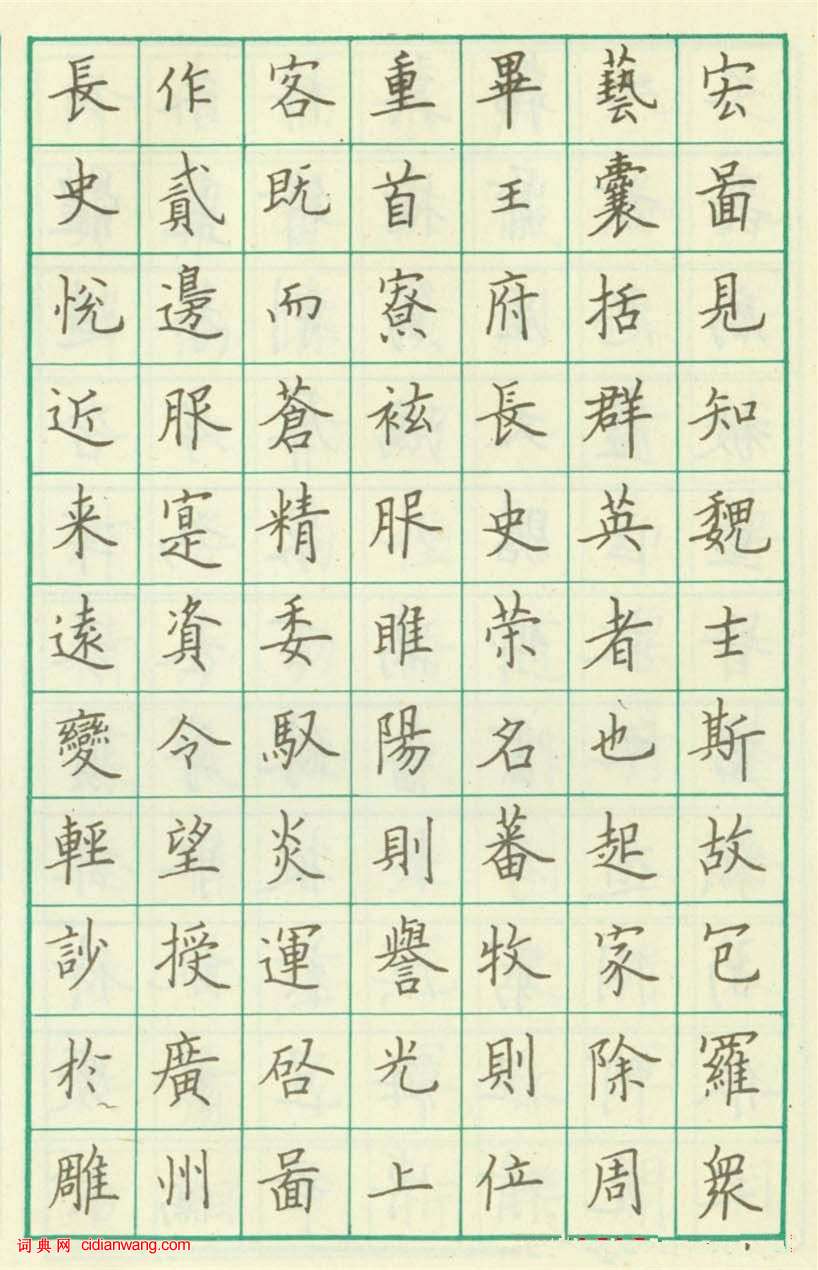 宏啚見知魏主斯故包羅衆
藝囊括群英者也起家除周
畢王府長史荣名蕃牧則位
重首寮袨服睢陽則譽光上
客既而蒼精委馭炎運启啚
作貳邊服寔資令望授廣州
長史悅近来遠變輕訬於雕
词典网 cidianwang.com